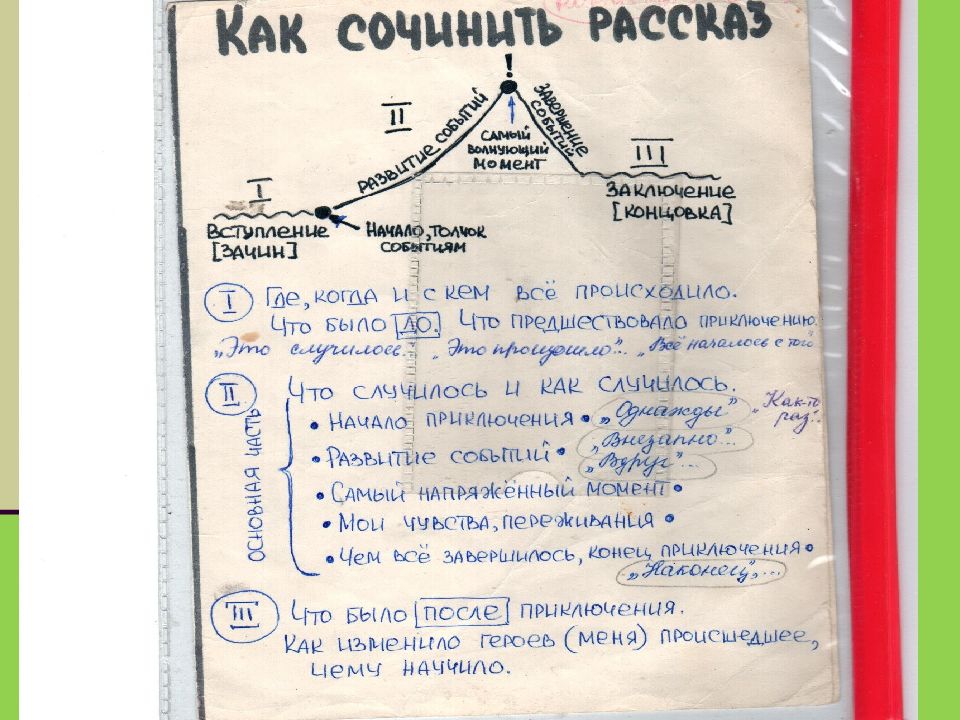 КАК СОЧИНИТЬ РАССКАЗ
!
II
РАЗВИТИЕ СОБЫТИЙ
ЗАВЕРШЕНИЕ
СОБЫТИЙ
САМЫЙ
ВОЛНУЮЩИЙ
МОМЕНТ
III
ЗАКЛЮЧЕНИЕ
[КОНЦОВКА]
I
ВСТУПЛЕНИЕ
[ЗАЧИН]
НАЧАЛО, ТОЛЧОК
СОБЫТИЯМ
I ГДЕ, КОГДА И С КЕМ ВСЁ ПРОИСХОДИЛО.
ЧТО БЫЛО ДО. ЧТО ПРЕДШЕСТВОВАЛО ПРИКЛЮЧЕНИЮ.
„Это случилось..." „Это произошло"... „Всё началось с того"
II ЧТО СЛУЧИЛОСЬ И КАК СЛУЧИЛОСЬ.
ОСНОВНАЯ ЧАСТЬ
• НАЧАЛО ПРИКЛЮЧЕНИЯ • „Однажды" „Как-то
раз"..
„Внезапно"...
• РАЗВИТИЕ СОБЫТИЙ • „Вдруг"...
• САМЫЙ НАПРЯЖЁННЫЙ МОМЕНТ •
• МОИ ЧУВСТВА, ПЕРЕЖИВАНИЯ •
• ЧЕМ ВСЁ ЗАВЕРШИЛОСЬ, КОНЕЦ ПРИКЛЮЧЕНИЯ •
„Наконец",...
III ЧТО БЫЛО ПОСЛЕ ПРИКЛЮЧЕНИЯ.
КАК ИЗМЕНИЛО ГЕРОЕВ (МЕНЯ) ПРОИСШЕДШЕЕ,
ЧЕМУ НАУЧИЛО.